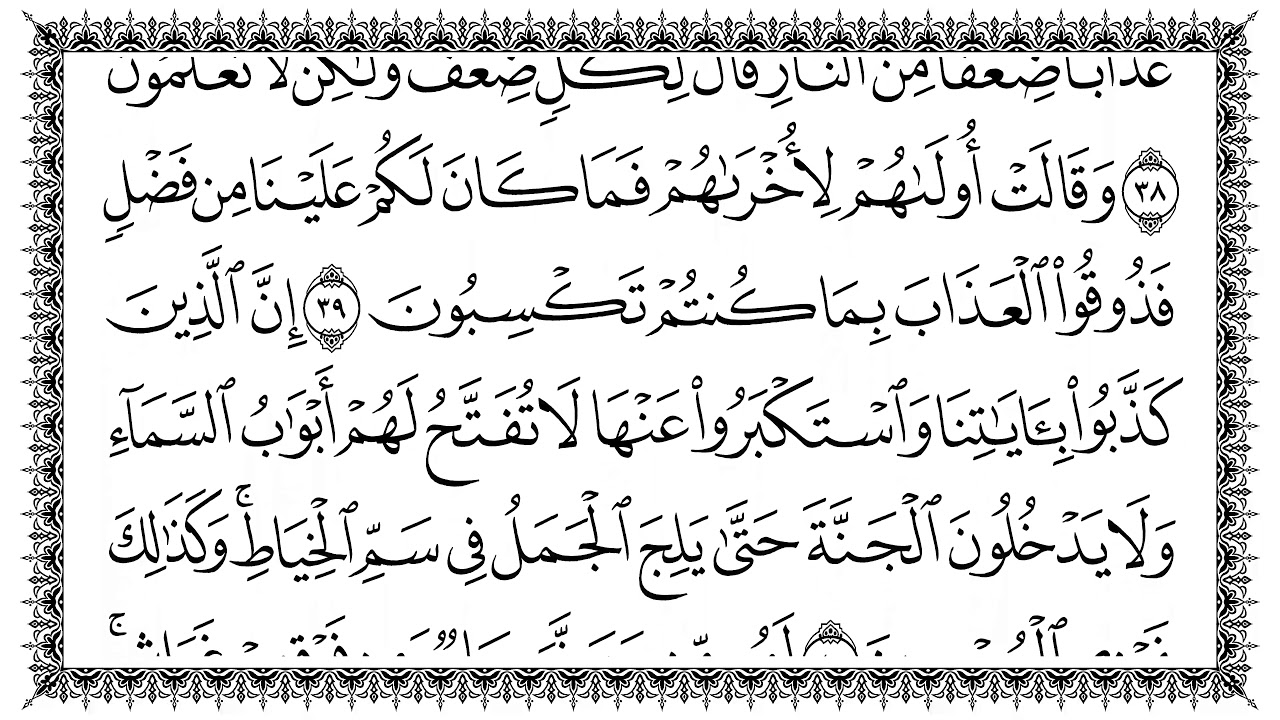 عَذَابًا ضِعْفًا مِّنَ ٱلنَّارِ قَالَ لِكُلٍّ ضِعْفٌ وَلَٰكِن لَّا تَعْلَمُونَ
٣٨ وَقَالَتْ أُولَىٰهُمْ لِأُخْرَىٰهُمْ فَمَا كَانَ لَكُمْ عَلَيْنَا مِن فَضْلٍ
فَذُوقُوا۟ ٱلْعَذَابَ بِمَا كُنتُمْ تَكْسِبُونَ ٣٩ إِنَّ ٱلَّذِينَ
كَذَّبُوا۟ بِـَٔايَٰتِنَا وَٱسْتَكْبَرُوا۟ عَنْهَا لَا تُفَتَّحُ لَهُمْ أَبْوَٰبُ ٱلسَّمَآءِ
وَلَا يَدْخُلُونَ ٱلْجَنَّةَ حَتَّىٰ يَلِجَ ٱلْجَمَلُ فِى سَمِّ ٱلْخِيَاطِ ۚ وَكَذَٰلِكَ